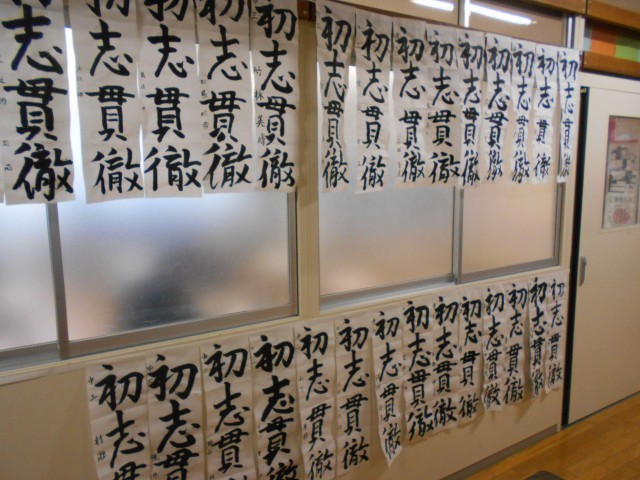 初志貫徹
初志貫徹
初志貫徹
初志貫徹
初志貫徹
初志貫徹
初志貫徹
初志貫徹
初志貫徹
初志貫徹
初志貫徹
初志貫徹
初志貫徹
初志貫徹
初志貫
初志貫
初志貫徹
初志貫徹
初志貫徹
初志貫徹
初志貫徹
初志貫徹
初志貫徹
初志貫徹
初志貫徹
初志貫徹
初志貫徹
初志貫徹